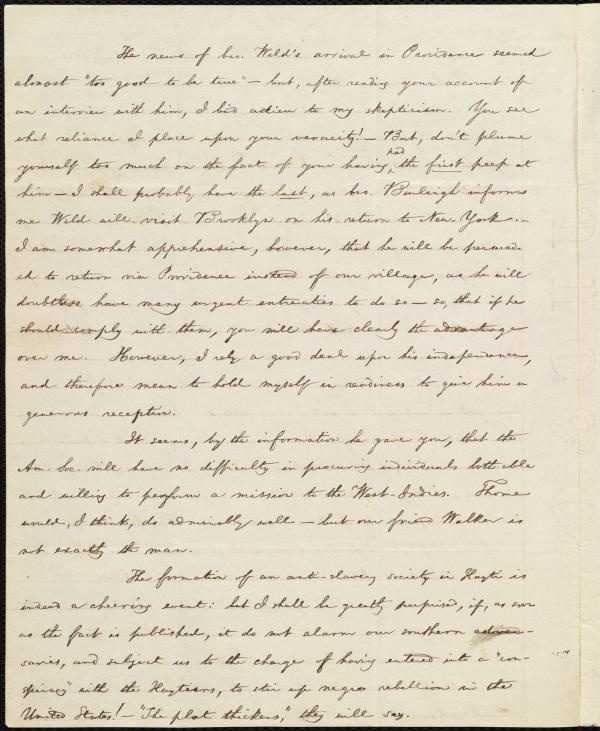 The news of bro. Weld's arrival in Providence seemed
almost "too good to be true" — but, after reading your account of
an interview with him, I bid adieu to my skepticism. You see
what reliance I place upon your veracity! — But, don't plume
yourself too much on the fact of your having had the first peep at
him — I shall probably have the last, as bro. Burleigh informs
me Weld will visit Brooklyn on his return to New-York. —
I am somewhat apprehensive, however, that he will be persuad-
ed to return via Providence instead of our village, as he will
doubtless have many urgent entreaties to do so — so, that if he
should comply with them, you will have clearly the advantage
over me. However, I rely a good deal upon his independence,
and therefore mean to hold myself in readiness to give him a
generous reception.
It seems, by the information he gave you, that the
Am. Soc. will have no difficulty in procuring individuals both able
and willing to perform a mission to the West-Indies. Thome
would, I think, do admirably well — but our friend Walker is
not exactly the man.
The formation of an anti-slavery society in Hayti is
indeed a cheering event: but I shall be greatly surprised, if, as soon
as the fact is published, it do not alarm our southern adver-
saries, and subject us to the charge of having entered into a "con-
spiracy" with the Haytians, to stir up negro rebellion in the
United States! — "The plot thickens," they will say.